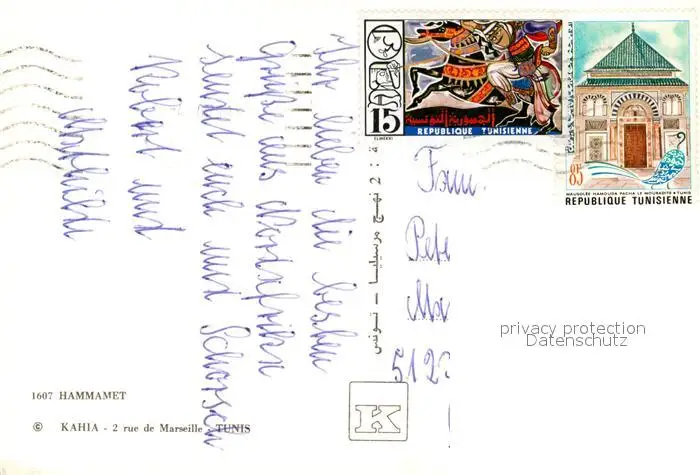 Ihr Lieben die besten
Grüße aus Nordafrika
senden euch und Schorsch
Robert und
Mathilde
15
الجمهورية التونسية
REPUBLIQUE TUNISIENNE
ELMEKKI
85
MAUSOLÉE HAMOUDA PACHA LE MOURADITE A TUNIS
REPUBLIQUE TUNISIENNE
Fam.
Pete
512
privacy protection
Datenschutz
2 نهج مرسيليا - تونس
K
1607 HAMMAMET
© KAHIA - 2 rue de Marseille - TUNIS